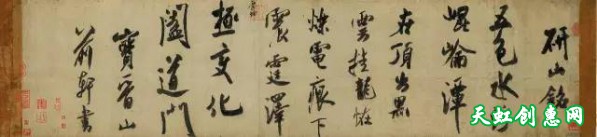 研山銘
五色水浮
崑崙潭
在頂出黑
雲挂龍怪
爍電痕下
震霆澤
極變化
闔道門
寶晉山
前軒書
天虹创意网